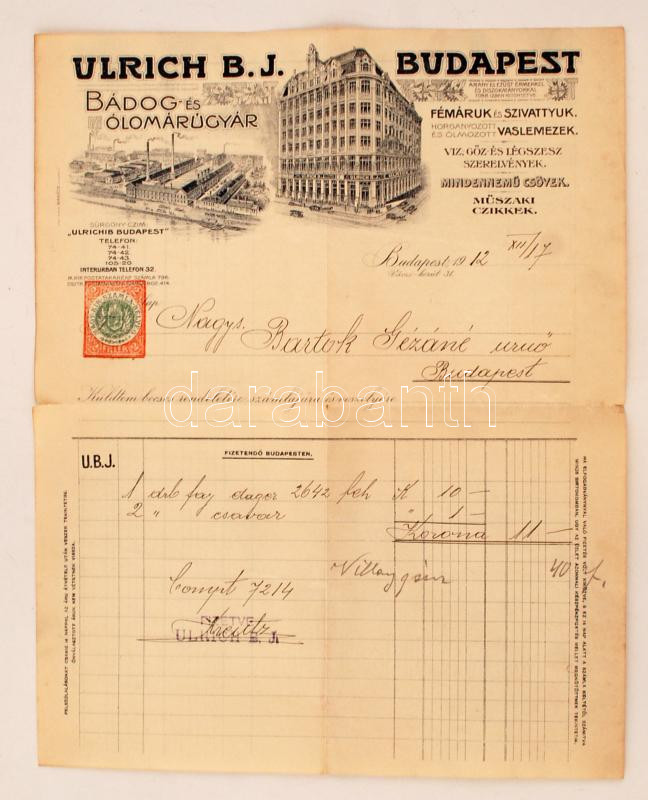 ULRICH B. J. BUDAPEST
BÁDOG- ÉS
ÓLOMÁRÚGYÁR
ARANY ÉS EZÜST ÉRMEKKEL
ÉS DISZOKMÁNYOKKAL
TÖBB ÍZBEN KITÜNTETVE.
FÉMÁRUK ÉS SZIVATTYUK.
HORGANYOZOTT
ÉS ÓLMOZOTT VASLEMEZEK.
VIZ, GŐZ- ÉS LÉGSZESZ
SZERELVÉNYEK.
MINDENNEMŰ CSÖVEK.
MŰSZAKI
CZIKKEK.
SÜRGÖNY-CZIM:
„ULRICHIB BUDAPEST"
TELEFON:
74-41.
74-42.
74-43.
105-20
INTERURBAN TELEFON 32.
Budapest, 1912 XII/17
Nagys. Bartok Gézáné urnő
Budapest
Küldtem becses rendeletére, számlájára és veszélyére
darabanth
U.B.J.
FIZETENDŐ BUDAPESTEN.
1 drb 2642 K 10 —
2 " csavar " 1 —
Korona 11 —
40 f.
Compt 7214
FIZETVE
ULRICH B. J.